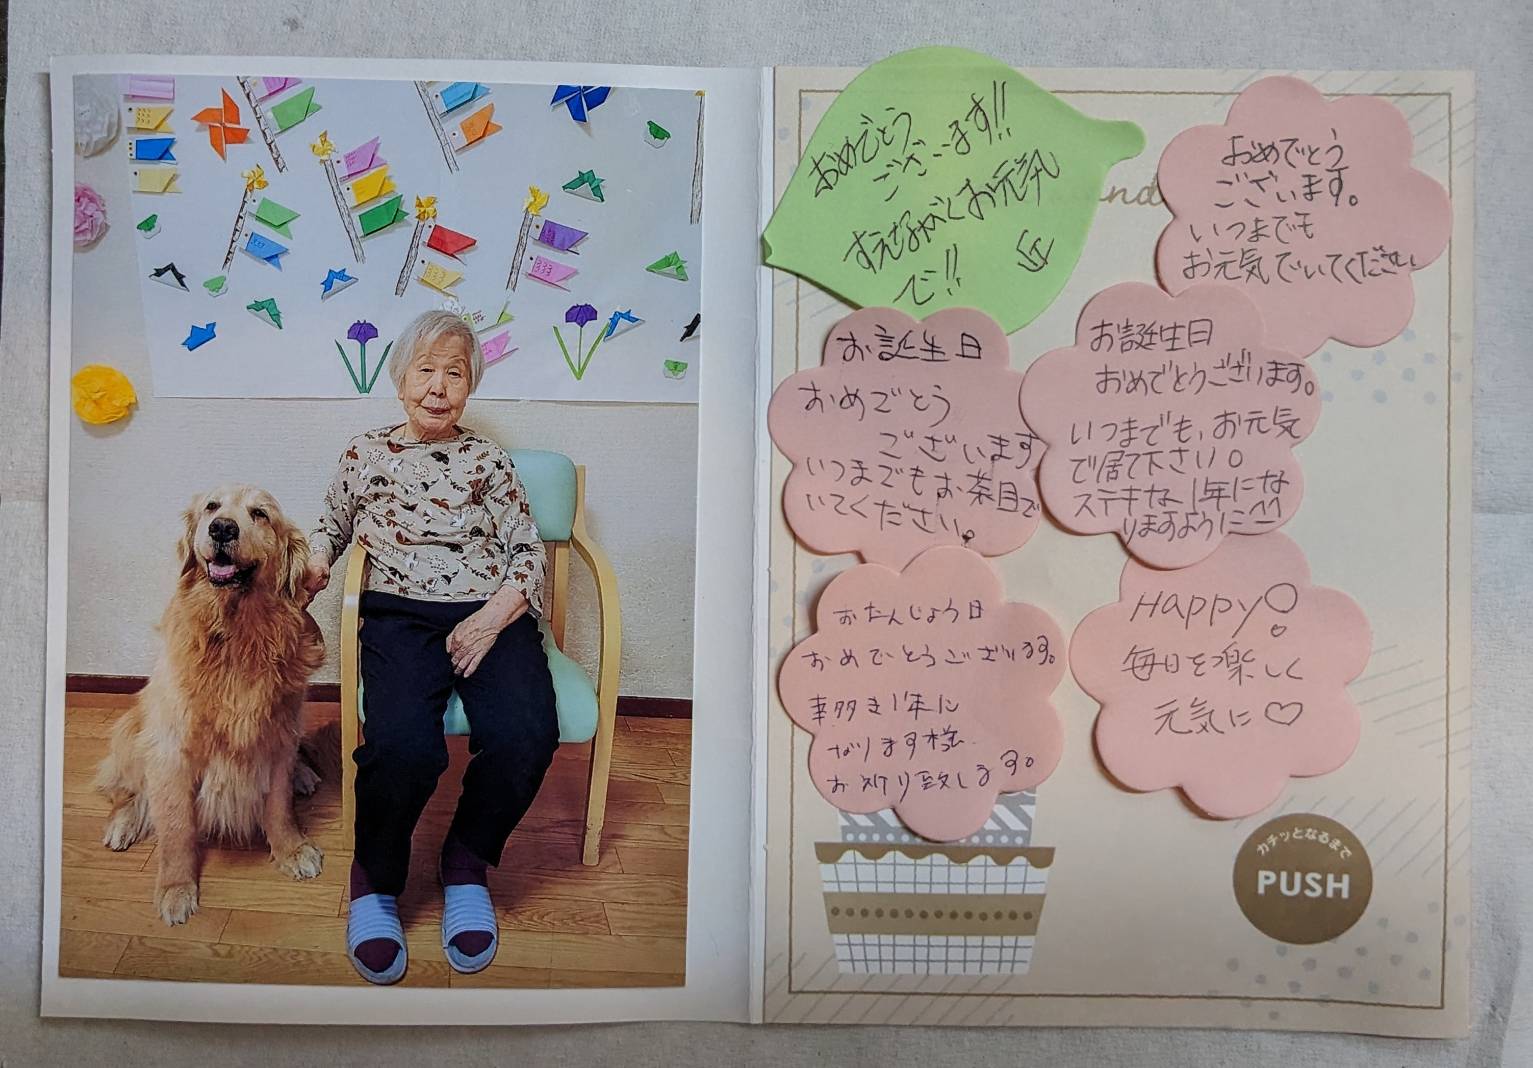 おめでとう
ございます!!
すえながくお元気
で!!
丘
おめでとう
ございます。
いつまでも
お元気でいてください
お誕生日
おめでとう
ございます
いつまでもお茶目で
いてください。
お誕生日
おめでとうございます。
いつまでも、お元気
で居て下さい。
ステキな1年にな
りますように^^
おたんじょう日
おめでとうございます。
幸多き1年に
なります様
お祈り致します。
Happy!
毎日を楽しく
元気に♡
カチッとなるまで
PUSH